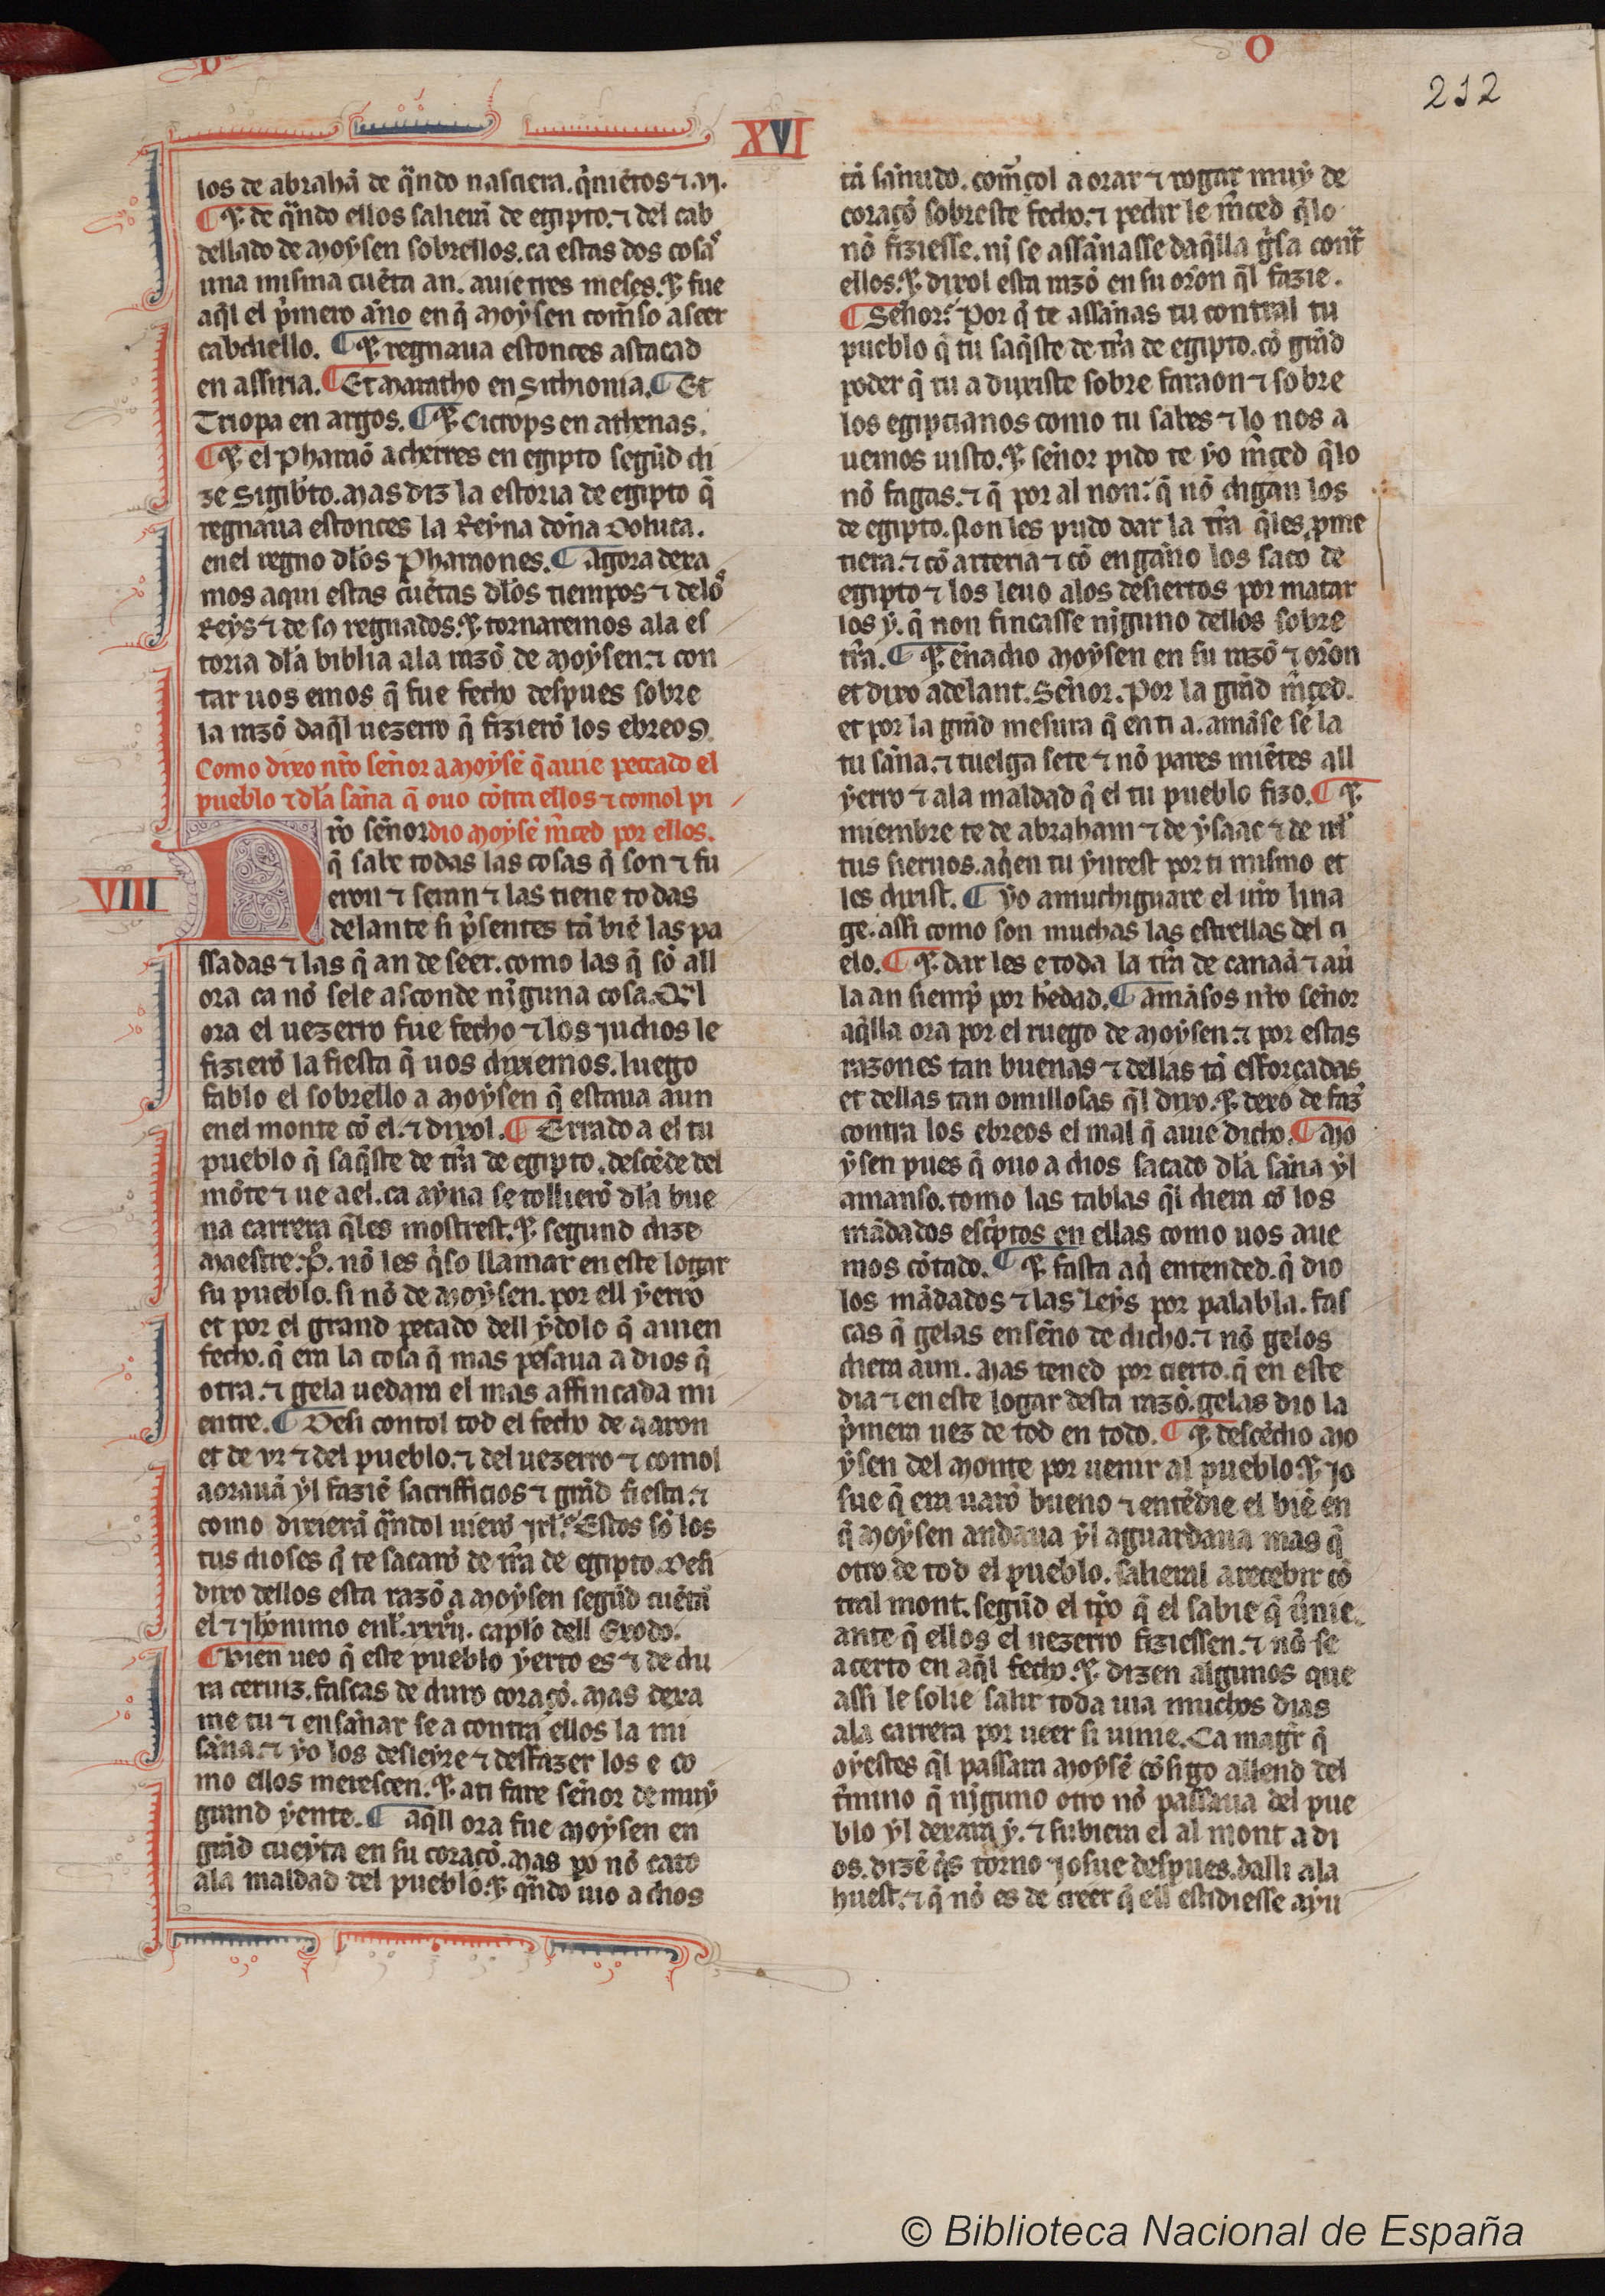 O
212
XVI
los de abrahã de q̃ndo nasciera. q̃niẽtos ⁊ .vi.
¶ ⁊ de q̃ndo ellos salierõ de egipto. ⁊ del cab
dellado de Moysen sobrellos. ca estas dos cosas
una misma cuẽta an. auie tres meses. ⁊ fue
aq̃l el p̃mero año en q̃ Moysen com̃so a seer
cabdiello. ¶ ⁊ regnaua estonces astacad
en assiria. ¶ Et Maratho en Sithionia. ¶ Et
Triopa en argos. ¶ ⁊ Cicrops en athenas.
¶ ⁊ el Pharaõ acherres en egipto segũd di
ze Sigib̃to. Mas diz la estoria de egipto q̃
regnaua estonces la Reyna doña Doluca.
en el regno dlos Pharaones. ¶ Agora dexa
mos aqui estas cuẽtas dlos tiempos ⁊ delos
Reys ⁊ de so regnados. ⁊ tornaremos ala es
toria dla biblia ala razõ de Moysen. ⁊ con
tar uos emos q̃ fue fecho despues sobre
la razõ daq̃l uezerro q̃ fizierõ los ebreos.
Como dixo nr̃o señor a Moysẽ q̃ auie peccado el
pueblo ⁊ dla saña q̃ ouo cõtra ellos ⁊ comol pi
dio Moysẽ m̃ced por ellos.
VIII
Nr̃o señor
q̃ sabe todas las cosas q̃ son ⁊ fu
eron ⁊ seran ⁊ las tiene todas
delante si p̃sentes tã biẽ las pa
ssadas ⁊ las q̃ an de seer. como las q̃ sõ all
ora ca nõ sele asconde ninguna cosa. Q̃l
ora el uezerro fue fecho ⁊ los judios le
fizierõ la fiesta q̃ uos dixiemos. luego
fablo el sobrello a Moysen q̃ estaua aun
enel monte cõ el. ⁊ dixol. ¶ Errado a el tu
pueblo q̃ saq̃ste de tr̃ra de egipto. desçẽde del
mõte ⁊ ue a el. ca ayna se tollierõ dla bue
na carrera q̃les mostrest. ⁊ segund dize
Maestre .P. nõ les q̃so llamar en este logar
su pueblo. si nõ de Moysen. por ell yerro
et por el grand pecado dell ydolo q̃ auien
fecho. q̃ era la cosa q̃ mas pesaua a dios q̃
otra. ⁊ gela uedara el mas affincada mi
entre. ¶ Desi contol tod el fecho de aaron
et de ur ⁊ del pueblo. ⁊ del uezerro ⁊ comol
aorauã yl fazıẽ sacrifficios ⁊ grãd fiesta. ⁊
como dixierã q̃ndol uierõ isrl̃. Estos sõ los
tus dioses q̃ te sacarõ de tr̃ra de egipto. Desi
dixo dellos esta razõ a Moysen segũd cuẽta
el ⁊ Jh̃onimo enl̃ .xxxij. capl̃o dell Exodo.
¶ Bien ueo q̃ este pueblo yerto es ⁊ de du
ra ceruiz. fascas de duro coraçõ. Mas dexa
me tu ⁊ ensañar se a contra ellos la mi
saña. ⁊ yo los desieyre ⁊ desfazer los e co
mo ellos merescen. ⁊ ati fare señor de muy
grand yente. ¶ Aq̃ll ora fue Moysen en
grãd cueyta en su coraçõ. Mas po nõ cato
ala maldad del pueblo. ⁊ q̃ndo uio a dios
tã sañudo. com̃çol a orar ⁊ rogar muy de
coraçõ sobreste fecho. ⁊ pedir le m̃ced q̃lo
nõ fiziesse. ni se assañasse daq̃lla g̃sa contra
ellos. ⁊ dixol esta razõ en su or̃on q̃l fazie.
¶ Señor. Por q̃ te assañas tu contral tu
pueblo q̃ tu saq̃ste de tr̃ra de egipto. cõ grãd
poder q̃ tu aduxiste sobre faraon ⁊ sobre
los egipcianos como tu sabes ⁊ lo nos a
uemos uisto. ⁊ señor pido te yo m̃ced q̃lo
nõ fagas. ⁊ q̃ por al non. q̃ nõ digan los
de egipto. Non les pudo dar la tr̃ra q̃les pme
tiera. ⁊ cõ arteria ⁊ cõ engaño los saco de
egipto ⁊ los leuo alos desiertos por matar
los y. q̃ non fincasse ninguno dellos sobre
tr̃ra. ¶ ⁊ eñadio Moysen en su razõ ⁊ or̃on
et dixo adelant. Señor. Por la grãd m̃çed.
et por la grãd mesura q̃ en ti a. amãse sẽ la
tu saña. ⁊ tuelga sete ⁊ nõ pares miẽtes all
yerro ⁊ ala maldad q̃ el tu pueblo fizo. ¶ ⁊
miembre te de abraham ⁊ de ysaac ⁊ de isrl̃
tus sieruos. aq̃en tu yurest por ti mismo et
les dixist. ¶ Yo amuchiguare el ur̃o lina
ge. assi como son muchas las estrellas del ci
elo. ¶ ⁊ dar les e toda la tr̃ra de canaã ⁊ aur̃
la an siemp̃ por h̃edad. ¶ Amãsos nr̃o señor
aq̃lla ora por el ruego de Moysen. ⁊ por estas
razones tan buenas ⁊ dellas tã esforçadas
et dellas tan omillosas q̃l dixo. ⁊ dexo de faz̃
contra los ebreos el mal q̃ auie dicho. ¶ Mo
ysen pues q̃ ouo a dios sacado dla saña yl
amanso. tomo las tablas q̃l diera cõ los
mãdados esc̃ptos en ellas como uos aue
mos cõtado. ¶ ⁊ fasta aq̃ entended. q̃ dio
los mãdados ⁊ las Leys por palabla. fas
cas q̃ gelas enseño de dicho. ⁊ nõ gelos
diera aun. Mas tened por cierto. q̃ en este
dia ⁊ en este logar desta razõ. gelas dio la
p̃mera uez de tod en todo. ¶ ⁊ desçẽdio Mo
ysen del Monte por uenir al pueblo. ⁊ Jo
sue q̃ era uarõ bueno ⁊ entẽdie el biẽ en
q̃ Moysen andaua yl aguardaua mas q̃
otro de tod el pueblo. salieral a recebir cõ
tral mont. segũd el tp̃o q̃ el sabie q̃ ũnie.
ante q̃ ellos el uezerro fiziessen. ⁊ nõ se
acerto en aq̃l fecho. ⁊ dizen algunos que
assi le solie salir toda uia muchos dias
ala carrera por ueer si uinie. Ca magr̃ q̃
oyestes q̃l passara Moysẽ cõsigo allend del
t̃mino q̃ ninguno otro nõ passaua del pue
blo yl dexara y. ⁊ subiera el al mont a di
os. dizẽ q̃s torno Josue despues. dalli ala
huest. ⁊ q̃ nõ es de creer q̃ ell estidiesse ayu
© Biblioteca Nacional de España